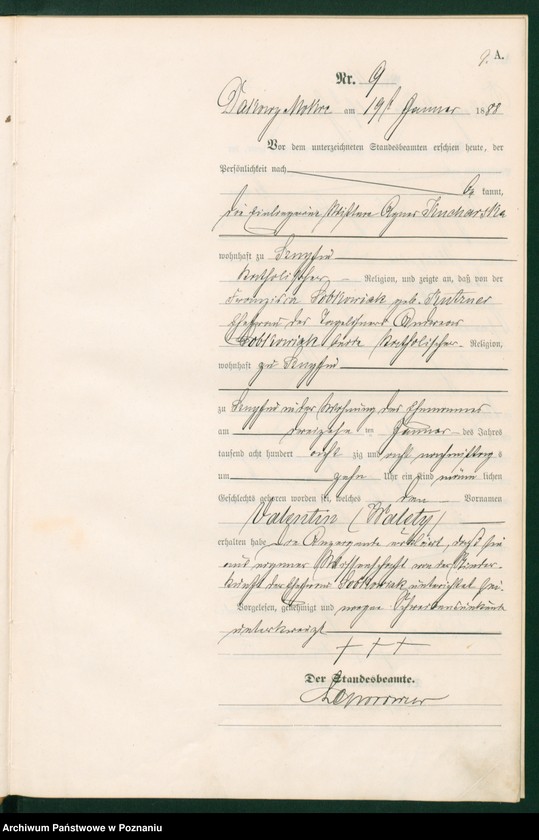 9. A.
Nr. 9
Dakowy Mokre am 19t Januar 1888
Vor dem unterzeichneten Standesbeamten erschien heute, der
Persönlichkeit nach
be kannt,
die Wittwe Agnes Kucharska
wohnhaft zu
katholischer Religion, und zeigte an, daß von der
Franziska Sobkowiak geb. Kutzner
Ehefrau des Tagelöhners Andreas
Sobkowiak beide katholischer Religion,
wohnhaft zu
zu in der Wohnung des Ehemannes
am dreizehn ten Januar des Jahres
tausend acht hundert acht zig und acht nachmittag s
um zehn Uhr ein Kind männ lichen
Geschlechts geboren worden sei, welches den Vornamen
Valentin (Walety)
erhalten habe. Die Anzeigende erklärt, daß sie
aus eigener Wissenschaft von der Nieder-
kunft der Ehefrau Sobkowiak unterrichtet sei.
Vorgelesen, genehmigt und wegen Schreibensunkunde
unterkreuzt
+ + +
Der Standesbeamte.
Archiwum Państwowe w Poznaniu